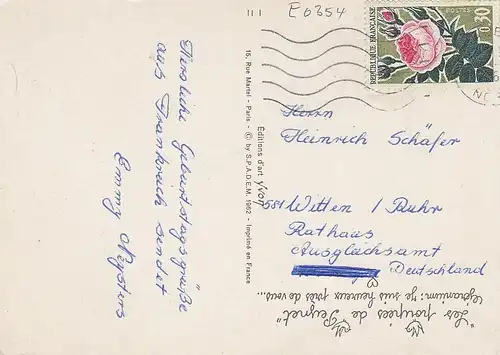 E 0354
Herzliche Geburtstagsgrüße
aus Frankreich sendet
Emmy
15, Rue Martel - Paris - © by S.P.A.D.E.M. 1962 - Imprimé en France
Éditions d'art Yvon
RÉPUBLIQUE FRANÇAISE
POSTES
0,30
Herrn
Heinrich Schäfer
581 Witten / Ruhr
Rathaus
Ausgleichsamt
Deutschland
"Les poupées de Peynet"
Géranium: "je suis heureux près de vous...